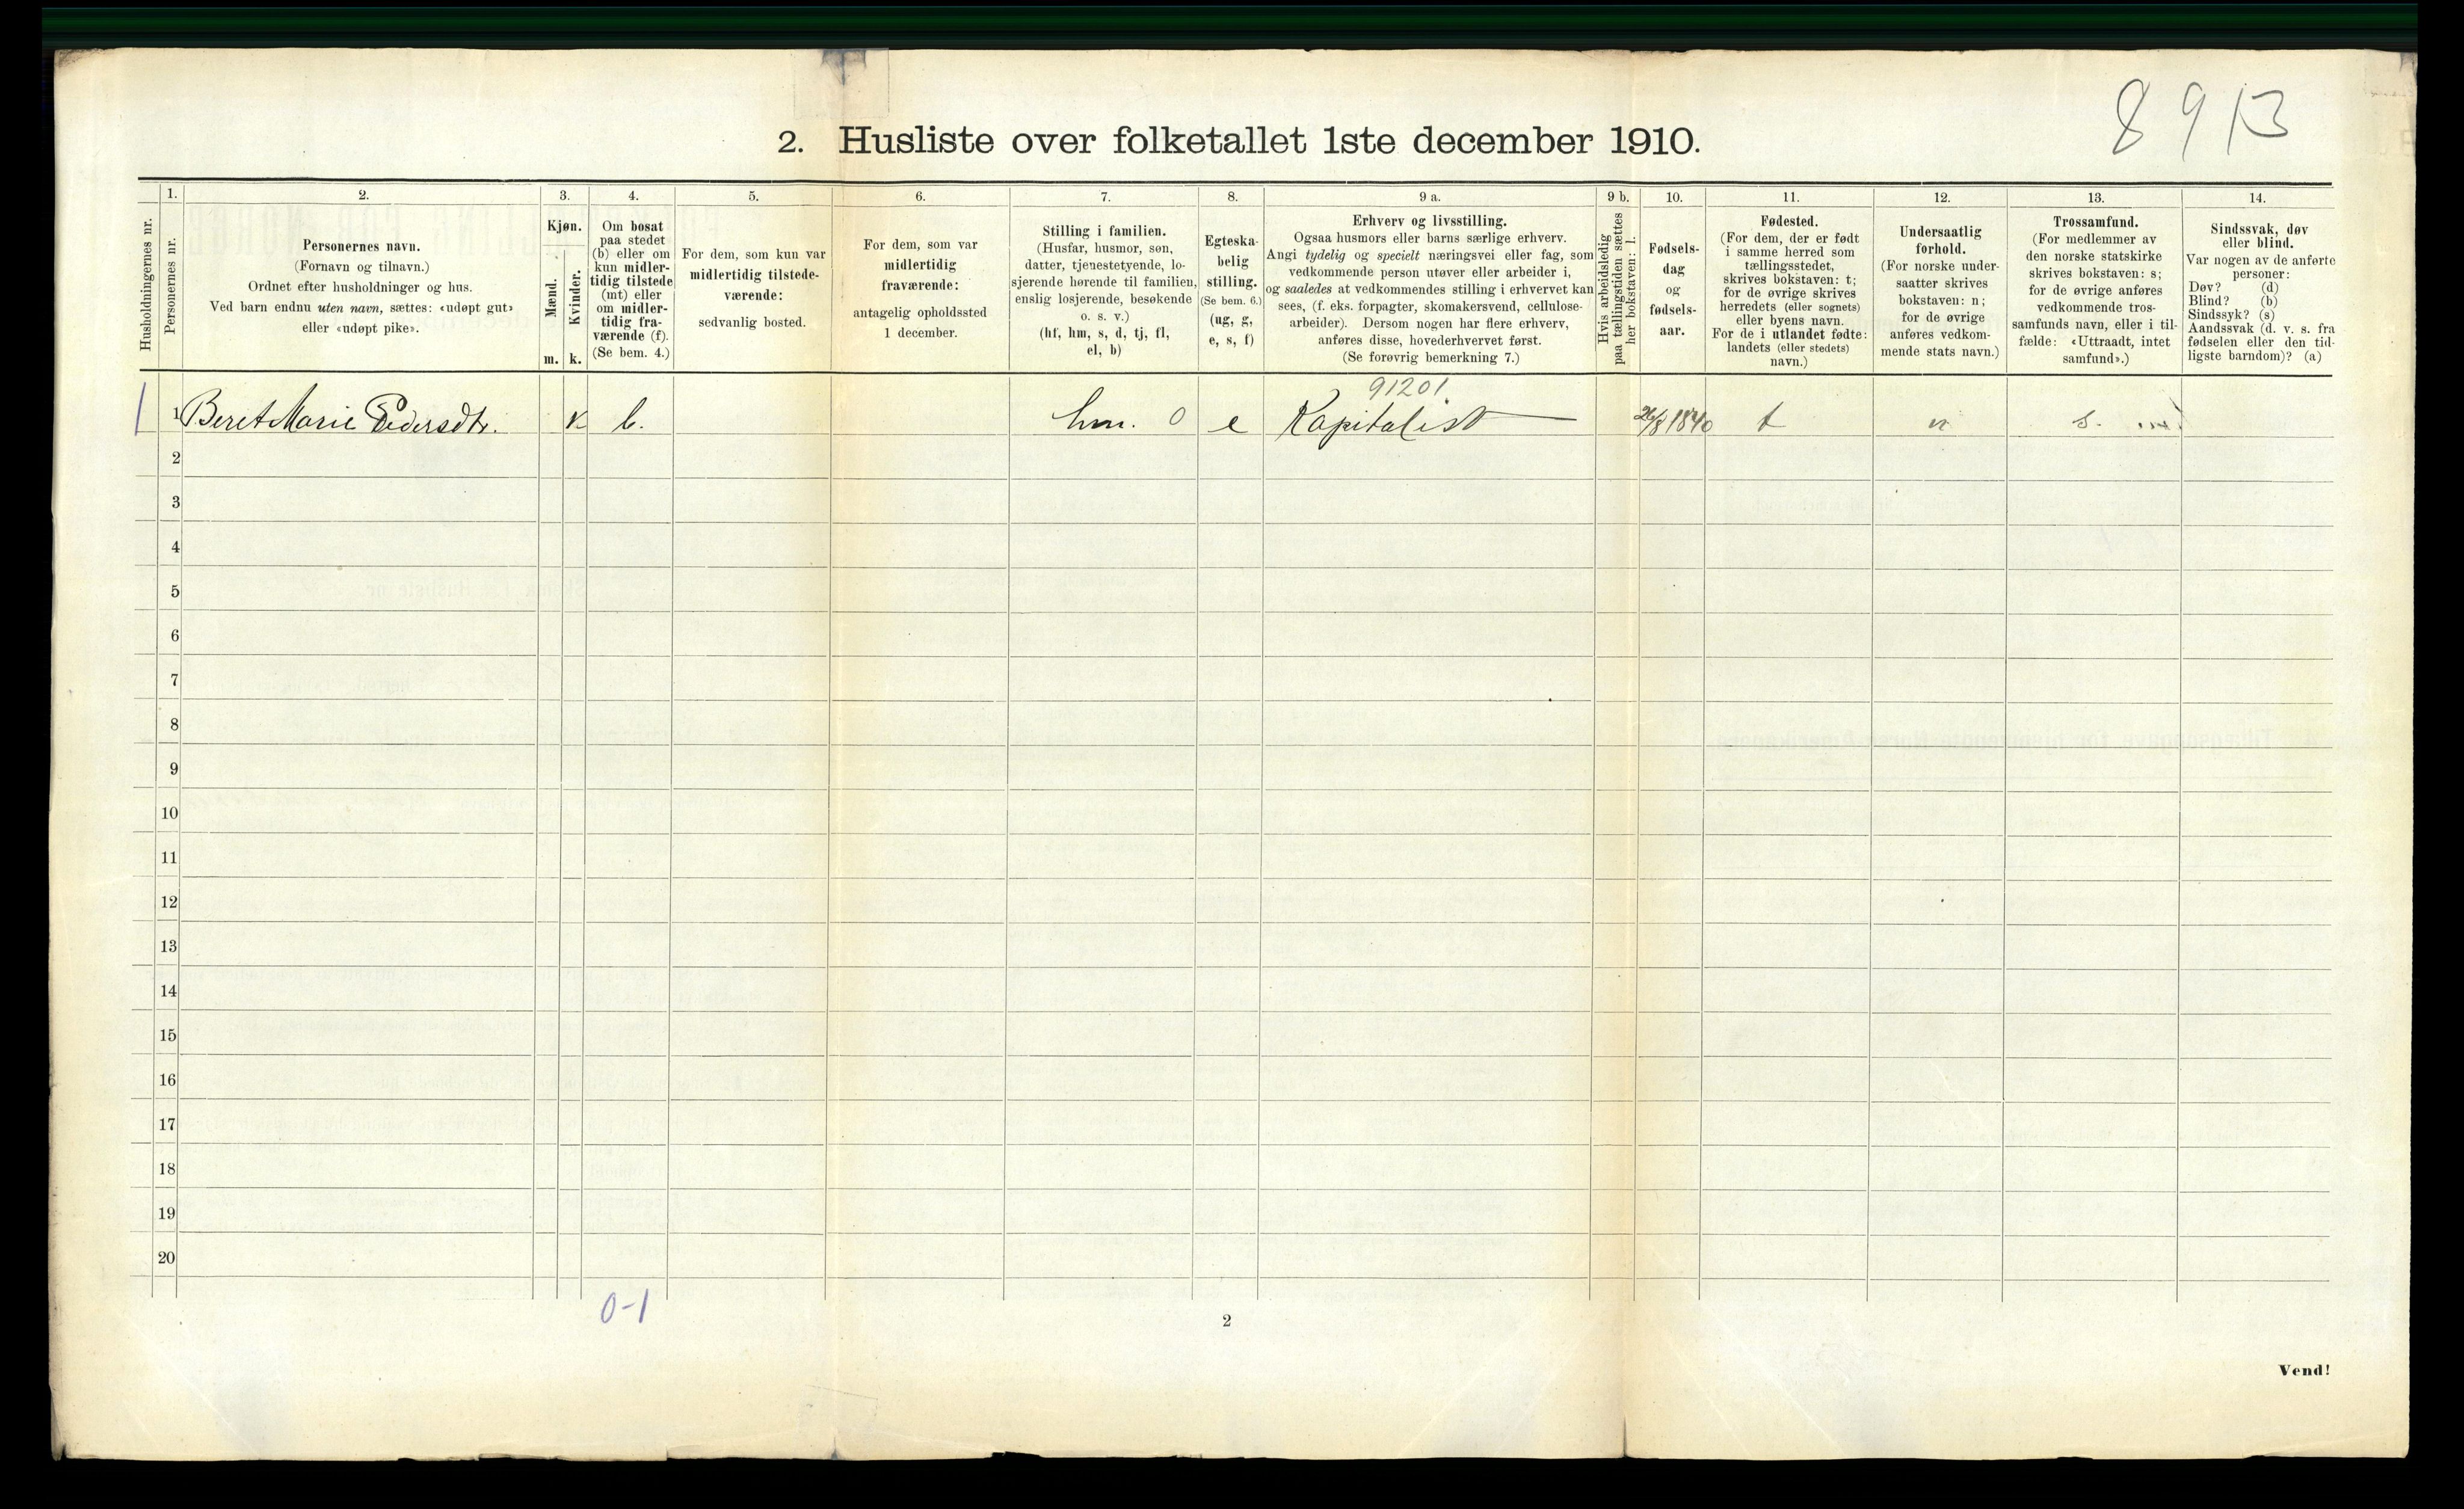 8 9 13
2. Husliste over folketallet 1ste december 1910.
Husholdningernes nr.
1.
Personernes nr.
2.
Personernes navn.
(Fornavn og tilnavn.)
Ordnet efter husholdninger og hus.
Ved barn endnu uten navn, sættes: «udøpt gut»
eller «udøpt pike».
3.
Kjøn.
Mænd.
Kvinder.
m. k.
4.
Om bosat
paa stedet
(b) eller om
kun midler-
tidig tilstede
(mt) eller
om midler-
tidig fra-
værende (f).
(Se bem. 4.)
5.
For dem, som kun var
midlertidig tilstede-
værende:
sedvanlig bosted.
6.
For dem, som var
midlertidig
fraværende:
antagelig opholdssted
1 december.
7.
Stilling i familien.
(Husfar, husmor, søn,
datter, tjenestetyende, lo-
sjerende hørende til familien,
enslig losjerende, besøkende
o. s. v.)
(hf, hm, s, d, tj, fl,
el, b)
8.
Egteska-
belig
stilling.
(Se bem. 6.)
(ug, g,
e, s, f)
9 a.
Erhverv og livsstilling.
Ogsaa husmors eller barns særlige erhverv.
Angi tydelig og specielt næringsvei eller fag, som
vedkommende person utøver eller arbeider i,
og saaledes at vedkommendes stilling i erhvervet kan
sees, (f. eks. forpagter, skomakersvend, cellulose-
arbeider). Dersom nogen har flere erhverv,
anføres disse, hovederhvervet først.
(Se forøvrig bemerkning 7.)
9 b.
Hvis arbeidsledig
paa tællingstiden sættes
her bokstaven: l.
10.
Fødsels-
dag
og
fødsels-
aar.
11.
Fødested.
(For dem, der er født
i samme herred som
tællingsstedet,
skrives bokstaven: t;
for de øvrige skrives
herredets (eller sognets)
eller byens navn.
For de i utlandet fødte:
landets (eller stedets)
navn.)
12.
Undersaatlig
forhold.
(For norske under-
saatter skrives
bokstaven: n;
for de øvrige
anføres vedkom-
mende stats navn.)
13.
Trossamfund.
(For medlemmer av
den norske statskirke
skrives bokstaven: s;
for de øvrige anføres
vedkommende tros-
samfunds navn, eller i til-
fælde: «Uttraadt, intet
samfund».)
14.
Sindssvak, døv
eller blind.
Var nogen av de anførte
personer:
Døv? (d)
Blind? (b)
Sindssyk? (s)
Aandssvak (d. v. s. fra
fødselen eller den tid-
ligste barndom)? (a)
91201
1 1 Beret Marie Pedersdtr. k b. hm. 0 e Kapitalist 26/8 1840 t n s.
2
3
4
5
6
7
8
9
10
11
12
13
14
15
16
17
18
19
20
0-1
2
Vend!